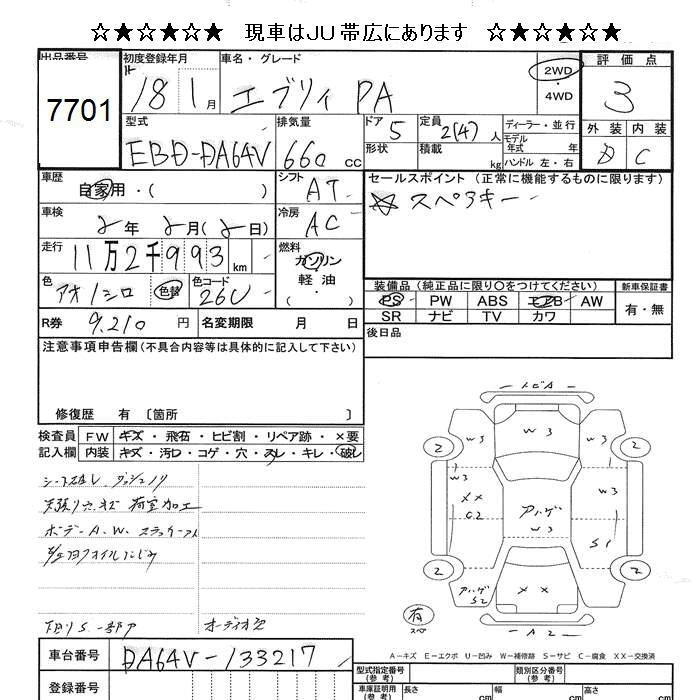 ☆★☆★☆★ 現車はJU帯広にあります ☆★☆★☆★
出品番号 7701
初度登録年月 H 18 1 月
車名・グレード エブリィ PA
2WD ・ 4WD
評価点 3
外装 D 内装 C
型式 EBD-DA64V
排気量 660 cc
ドア 5 形状
定員 2(4) 人 積載 kg
ディーラー・並行
モデル年式 年
ハンドル 左・右
車歴 自家用・( )
シフト AT
車検 2年 2月(2日)
冷房 AC
走行 11万2千993 km
燃料 ガソリン 軽油 ・
色 アオ/シロ 色替
色コード 26U
R券 9,210 円 名変期限 月 日
セールスポイント (正常に機能するものに限ります)
スペアキー
装備品 (純正品に限り○をつけてください)
PS PW ABS エアB AW
SR ナビ TV カワ
新車保証書 有・無
後日品
注意事項申告欄(不具合内容等は具体的に記入して下さい)
修復歴 有 〔箇所 〕
検査員記入欄
FW キズ・飛石・ヒビ割・リペア跡・×要
内装 キズ・汚レ・コゲ・穴・スレ・キレ・破レ
天張リ穴、キズ 荷室加工
ボデーA.W.
下廻りS 一部ア
オーディオ欠
トビA
W3 W3 W3
2 2
XX
C2
アハゲ
W3
W3
S1
2 2
アハゲ
S2
XX
有
スペ
A2
A-キズ E-エクボ U-凹み W-補修跡 S-サビ C-腐食 XX-交換済
車台番号 DA64V-133217
登録番号
型式指定番号(参考) 類別区分番号(参考)
車庫証明用(参考) 長さ cm 幅 cm 高さ cm